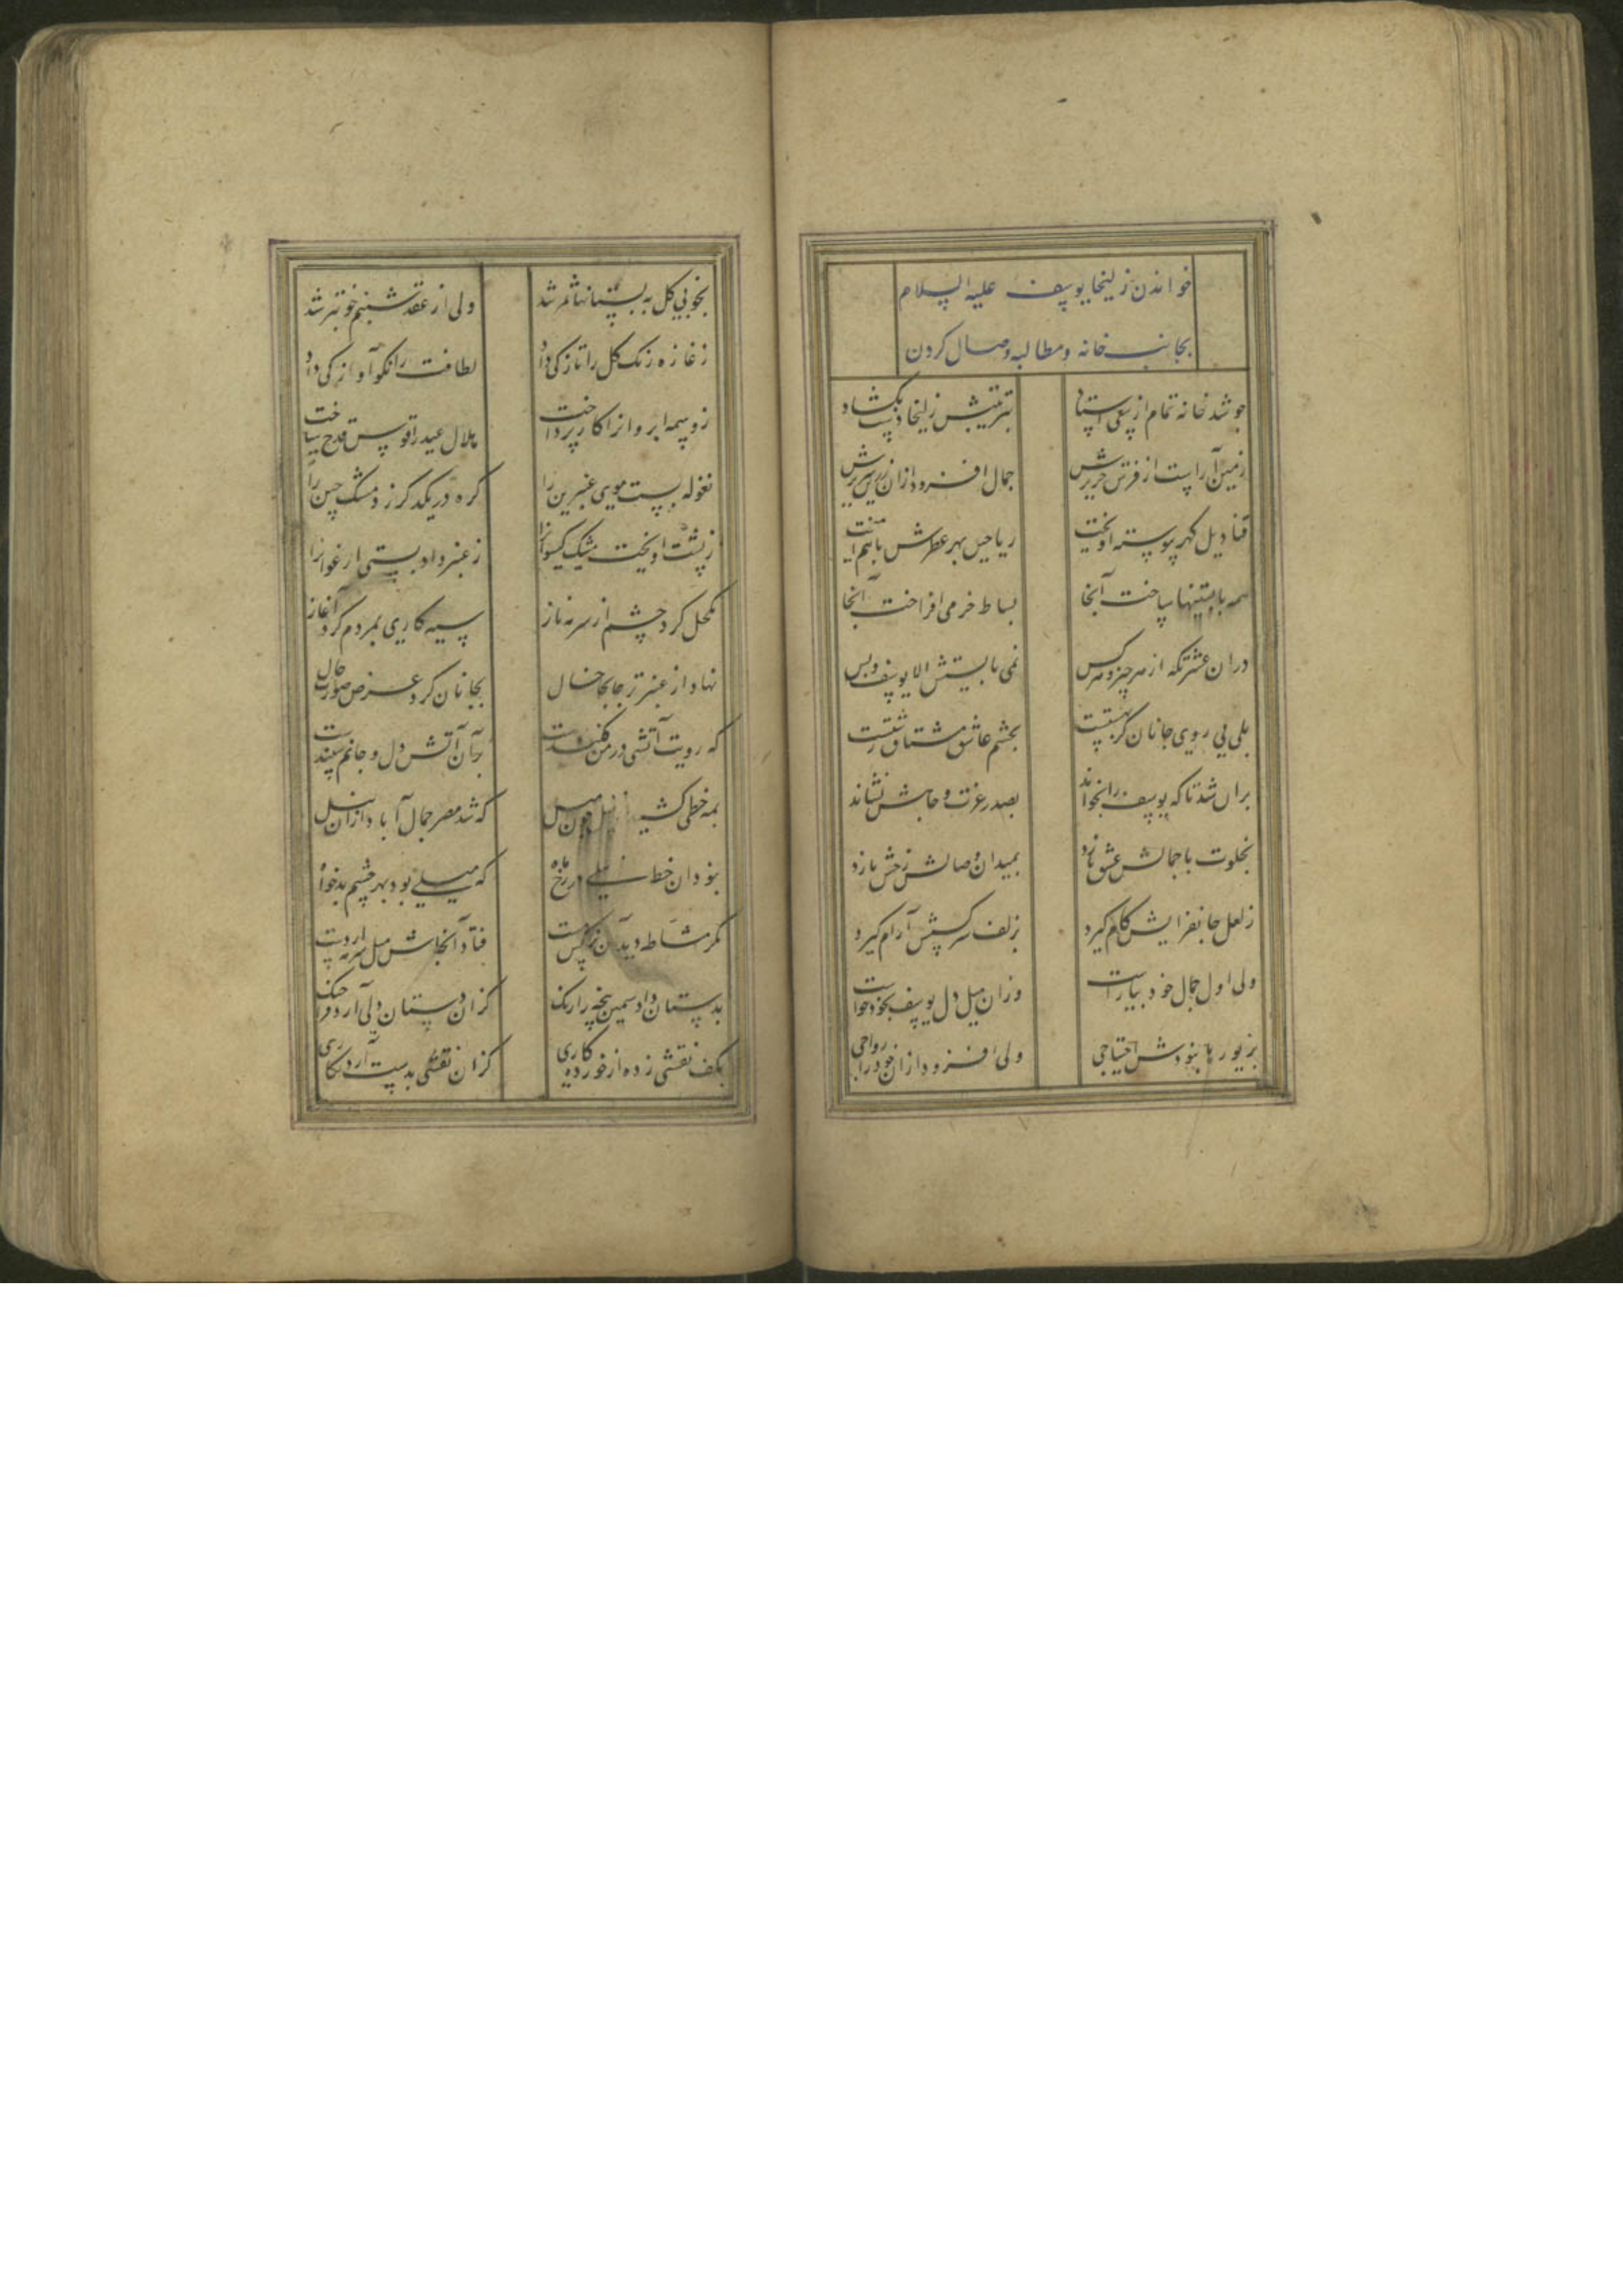 خواندن زلیخا یوسف علیه السلام
بجانب خانه و مطالبه وصال کردن
چو شد خانه تمام از سعی استاد بتزیینش زلیخا دست بکشاد
زمین آراست از فرش حریرش جمال افزود از زرین سریرش
قنادیل گهر پیوسته آویخت ریاحین بهر عطرش باهم آمیخت
همه بایستنیها ساخت آنجا بساط خرمی افراخت آنجا
دران عشرتگه از هر چیز و هر کس نمی بایستش الا یوسف و بس
بلی بی روی جانان گر بهشتست بچشم عاشق مشتاق زشتست
بران شد تا که یوسف را بخواند بصدر عزت و جاهش نشاند
بخلوت با جمالش عشق بازد بمیدان وصالش رخش تازد
ز لعل جانفزایش کام گیرد بزلف سرکشش آرام گیرد
ولی اول جمال خود بیاراست وزان میل دل یوسف بخود خواست
بزیورها نبودش احتیاجی ولی افزود ازان خود را رواجی
بخوبی گل به بستانها سمر شد ولی از عقد شبنم خوبتر شد
ز غازه رنگ گل را تازگی داد لطافت را نکو آوازگی داد
ز وسمه ابروانرا کار پرداخت هلال عید را قوس قزح ساخت
نغوله بست موی عنبرین را گره در یکدگر زد مشک چین را
ز پشت آویخت مشکین گیسوانرا ز عنبر داد پشتی ارغوانرا
مکحل کرد چشم از سرمه ناز سیه کاری بمردم کرد آغاز
نهاد از عنبر تر جابجا خال بجانان کرد عرض صورت حال
که رویت آتشی در من فکندست بر آن آتش دل و جانم سپندست
بمه خطی کشید از نیل چون میل که شد مصر جمال آباد ازان نیل
نبود آن خط نیلی بر رخ ماه که میلی بود بهر چشم بدخواه
مگر مشاطه دید آن نرگس مست فتاد آنجاش میل سرمه از دست
بدستان داد سیمین پنجه را رنگ کزان دستان دلی آرد فراچنگ
بکف نقشی زده از خورده کاری کزان نقشی بدست آرد نگاری